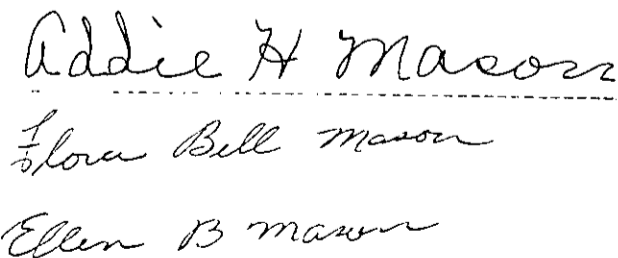 Addie H Mason
Flora Bell Mason
Ellen B Mason